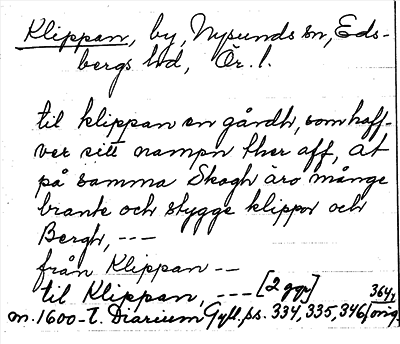 Klippan, by, Nysunds sn, Eds-
bergs hd, Ör. l.
til klippan en gårdh, som haff-
ver sitt nampn ther aff, at
på samma Skogh äro många
brante och stygge klippor och
Bergh, ---
från Klippan --
til Klippan, --- [2 ggr]
m. 1600-t. Diarium Gyll. ss. 334, 335, 346, 364,